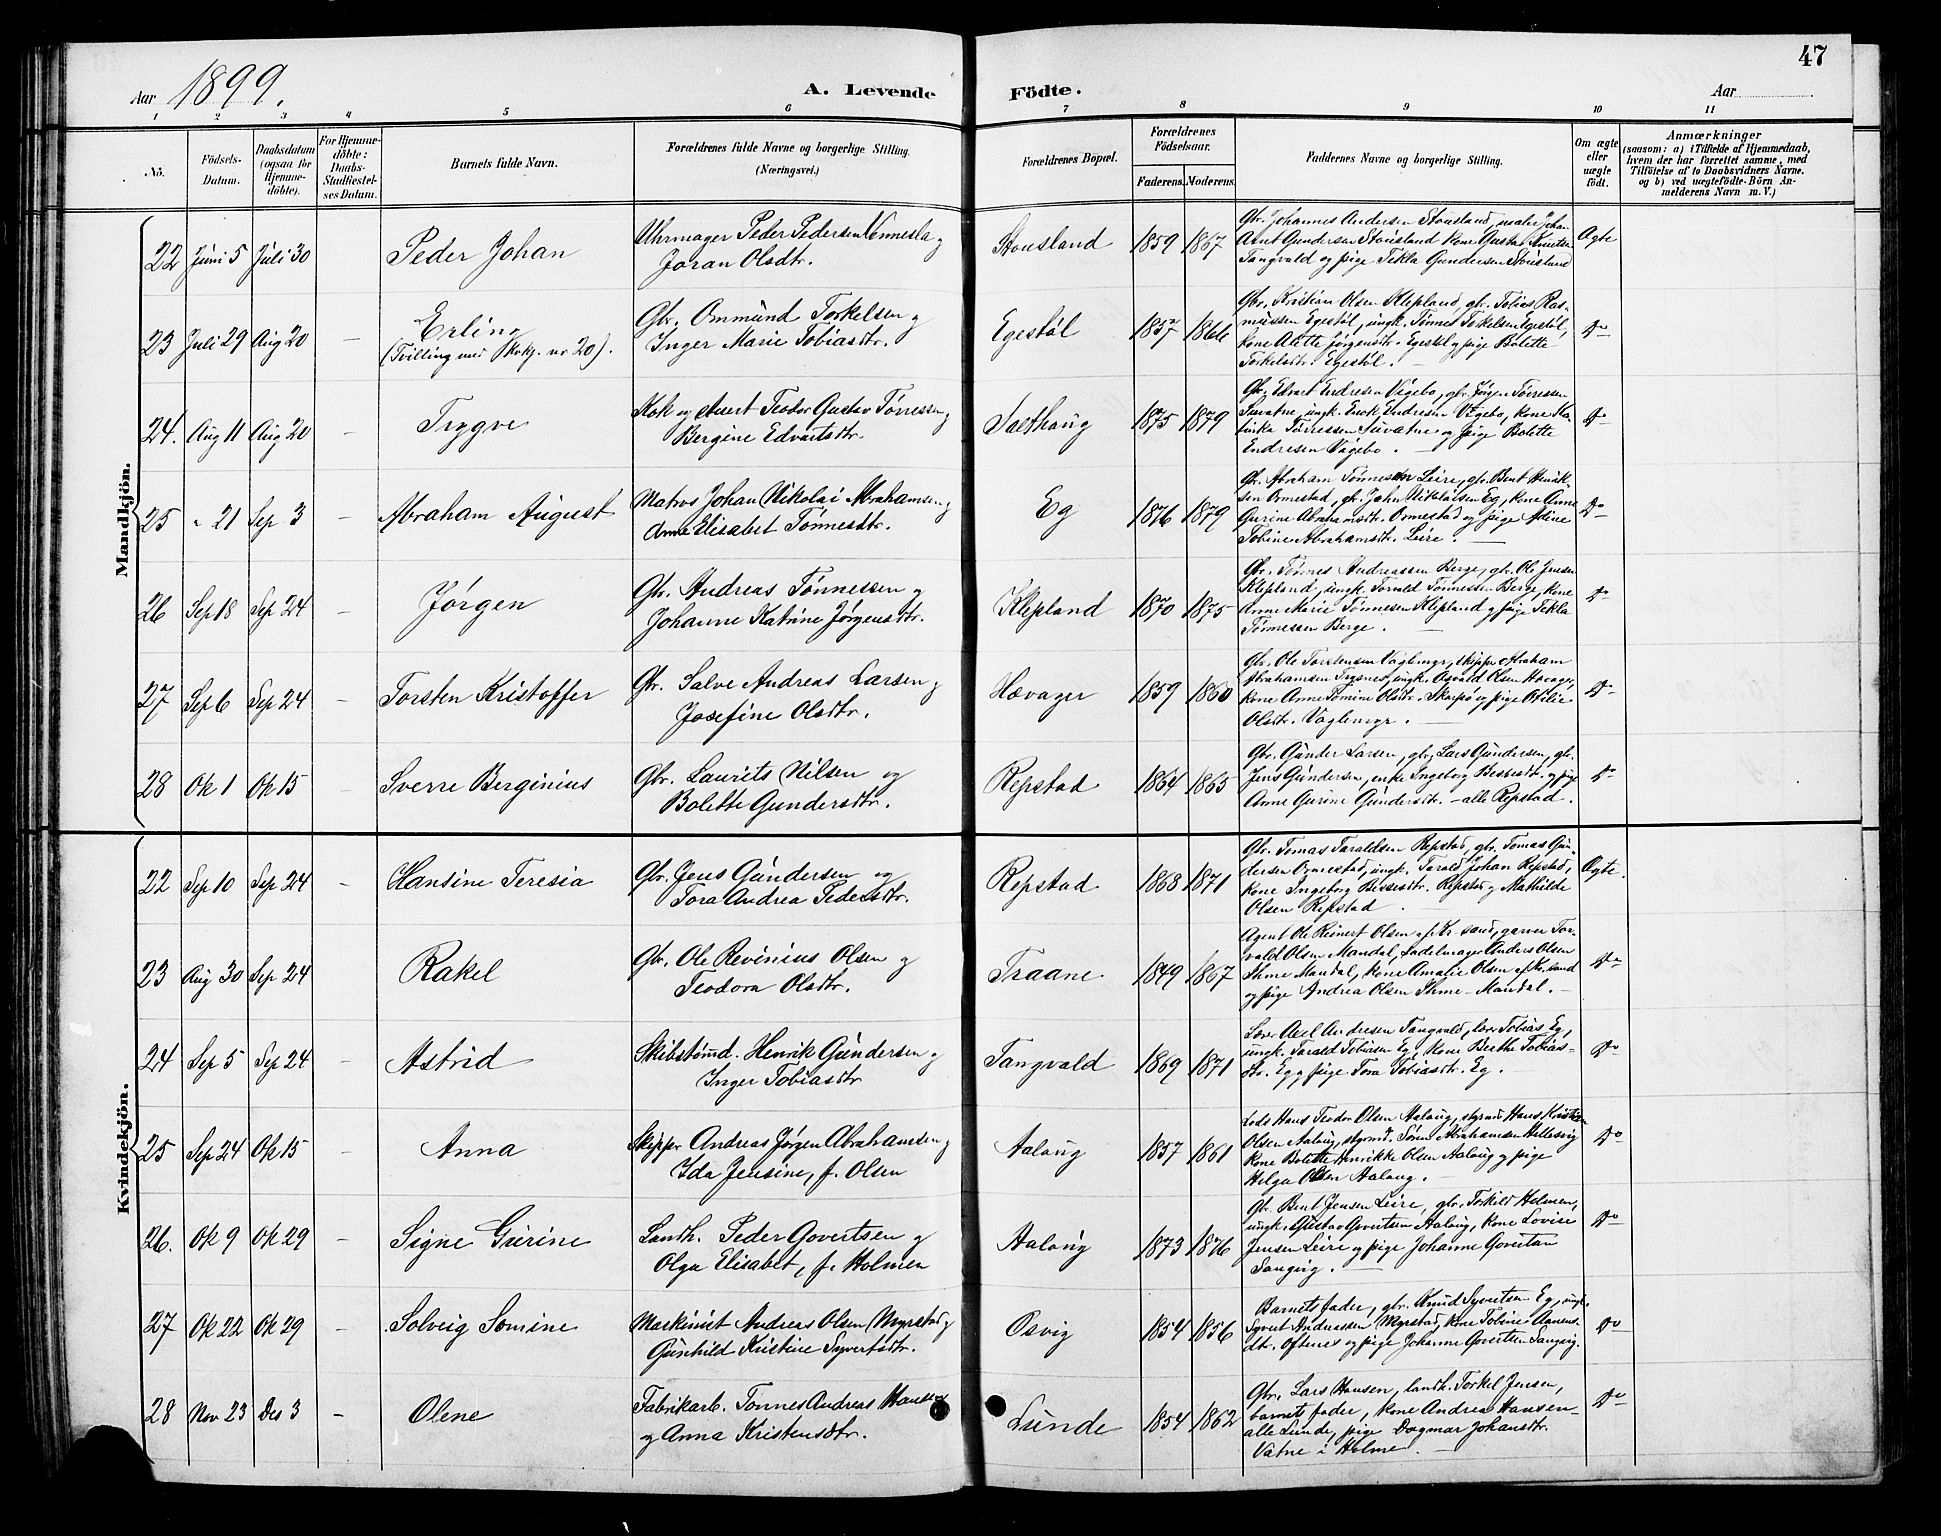 47
Aar 1899.
A. Levende Födte.
Aar
1 2 3 4 5 6 7 8 9 10 11
No.
Födsels-Datum.
Daabsdatum (ogsaa for Hjemme-döbte).
For Hjemme-döbte: Daabs-Stadfæstel-ses Datum.
Barnets fulde Navn.
Forældrenes fulde Navne og borgerlige Stilling. (Næringsvei.)
Forældrenes Bopæl.
Forældrenes Födselsaar.
Faderens. Moderens.
Faddernes Navne og borgerlige Stilling.
Om ægte eller uægte födt.
Anmærkninger
(saasom: a) i Tilfælde af Hjemmedaab,
hvem der har forrettet samme, med
Tilföielse af to Daabsvidners Navne.
og b) ved uægtefödte Börn An-
melderens Navn m. V.)
Mandkjön.
22 Juni 5 Juli 30 Peder Johan
Uhrmager Peder Pedersen Vennesla og
Joran Olsdtr.
Stousland 1859 1867
Gbr. Johannes Andersen Stousland, maler Johan
Arnt Gundersen Stousland kone Gusta Knutsen
Tangvald og pige Tekla Gundersen Stousland
Ægte
23 Juli 29 Aug 20 – Erling
(Tvilling med Pkokj. nr 20).
Gbr. Ommund Torkelsen og
Inger Marie Tobiasdtr.
Egestøl 1857 1866
Gbr. Kristian Olsen Klepland, gbr. Tobias Ras-
mussen Egestøl, ungk. Tønnes Torkelsen Egestøl,
kone Alette Jørgensdtr. Egestøl og pige Bolette
Torkelsdtr. Egestøl.
Do
24. Aug 11 Aug 20 – Trygve
Kok og Avert Teodor Gustav Tørressen og
Bergine Edvartsdtr.
Salthaug 1875 1879
Gbr. Edvart Endresen Vigebo, gbr. Jørgen Tørressen
Suvatne, ungk. Enok Endresen Vigebo, kone Ka-
tinka Tørressen Suvatne og pige Bolette
Endresen Vigebo.
Do
25 " 21 Sep 3 – Abraham August
Matros Johan Nikolai Abrahamsen og
Anne Elisabet Tønnesdtr.
Eg 1876 1879
Gbr. Abraham Tønnessen Leire, gbr. Bent Henrik-
sen Ormestad, gk. John Niklaisen Eg, kone Anne
Gurine Abrahamsdtr. Ormestad og pige Adine
Tobine Abrahamsdtr. Leire.
Do
26 Sep 18 Sep 24 – Jørgen
Gbr. Andreas Tønnessen og
Johanne Katrine Jørgensdtr.
Klepland 1870 1875
Gbr. Tønnes Andreassen Berge, gbr. Ole Jensen
Klepland, ungk. Torvald Tønnessen Berge, kone
Anne Marie Tønnessen Klepland og pige Tekla
Tønnessen Berge.
Do
27 Sep 6 Sep 24 – Torsten Kristoffer
Gbr. Salve Andreas Larsen og
Josefine Olsdtr.
Hævager 1859 1860
Gbr. Ole Torstensen Vaglemyr, skipper Abraham
Abrahamsen Trysnes, ungk. Osvald Olsen Høvager,
kone Anne Tomine Olsdtr. Skarpø og pige Otilie
Olsdtr. Vaglemyr.
Do
28 Ok 1 Ok 15 – Sverre Berginius
Gbr. Laurits Nilsen og
Bolette Gundersdtr.
Repstad 1864 1865
Gbr. Gunder Larsen, gbr. Lars Gundersen, gbr.
Jens Gundersen, enke Ingeborg Besesdtr. og pige
Anne Gurine Gundersdtr. – alle Repstad.
Do
Kvindekjön.
22 Sep 10 Sep 24 – Hansine Teresia
Gbr. Jens Gundersen og
Tora Andrea Pedersdtr.
Repstad 1868 1871
Gbr. Tomas Taraldsen Repstad, gbr. Tomas Gun-
dersen Ormestad, ungk. Tarald Johan Repstad,
kone Ingeborg Bissesdtr. Repstad og Mathilde
Olsen Repstad.
Ægte.
23 Aug 30 Sep 24 – Rakel
Gbr. Ole Revinius Olsen og
Teodora Olsdtr.
Traane 1849 1867
Agent Ole Reinert Olsen af Kr.sand, garver Tor-
vald Olsen Mandal, Sadelmager Anders Olsen
Ihme Mandal, kone Amalie Olsen af Kr.sand
og pige Andrea Olsen Ihme – Mandal.
Do
24 Sep 5 Sep 24 – Astrid
Skibstømd. Henrik Gundersen og
Inger Tobiasdtr
Tangvald 1869 1871
Lærer Axel Andresen Tangvald, lærer Tobias Eg,
ungk. Tarald Tobiasen Eg, kone Berthe Tobias-
dtr. Eg og pige Tora Tobiasdtr. Eg.
Do
25 Sep 24 Ok 15 – Anna
Skipper Andreas Jørgen Abrahamsen og
Ida Jensine, f. Olsen
Aalaug 1857 1861
Lods Hans Teodor Olsen Aalaug, styrmd. Hans Kristian
Olsen Aalaug, styrmd. Søren Abrahamsen Hillesvig
kone Bolette Henrikke Olsen Aalaug og pige
Helga Olsen Aalaug.
Do
26. Ok 9 Ok 29 – Signe Gurine
Landh. Peder Govertsen og
Olga Elisabet, f. Holmen
Aalaug 1873 1876
Gbr. Bent Jensen Leire, gbr. Torkild Holmen,
ungk. Gustav Govertsen Aalaug, kone Lovise
Jensen Leire og pige Johanne Govertsen
Langvig.
Do
27 Ok 22 Ok 29 – Solveig Somine
Maskinist Andreas Olsen Myrstad og
Gunhild Kristine Syvertsdtr.
Osvig 1854 1856
Barnets fader, gbr. Knud Syvertsen Eg, ungk.
Syvert Andreassen Myrstad, kone Tobine Aanens-
dtr. Oftenes og pige Johanne Govertsen Langvig.
Do
28 Nov 23 Des 3 – Olene
Fabrikarb. Tønnes Andreas Hansen
og Anna Kristensdtr.
Lunde 1854 1862
Gbr. Lars Hansen, landh. Torkel Jensen,
barnets fader, kone Andrea Hansen –
alle Lunde, pige Dagmar Johansdtr.
Vatne i Holme.
Do